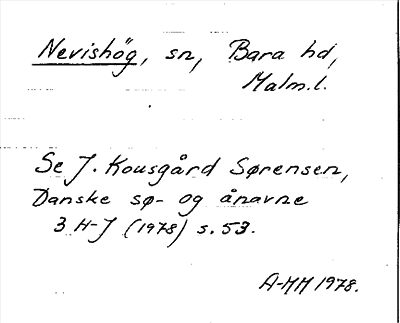 Nevishög, sn, Bara hd,
Malm.l.
Se J. Kousgård Sørensen,
Danske sø- og ånavne
3 H-J (1978) s. 53.
A-MH 1978.